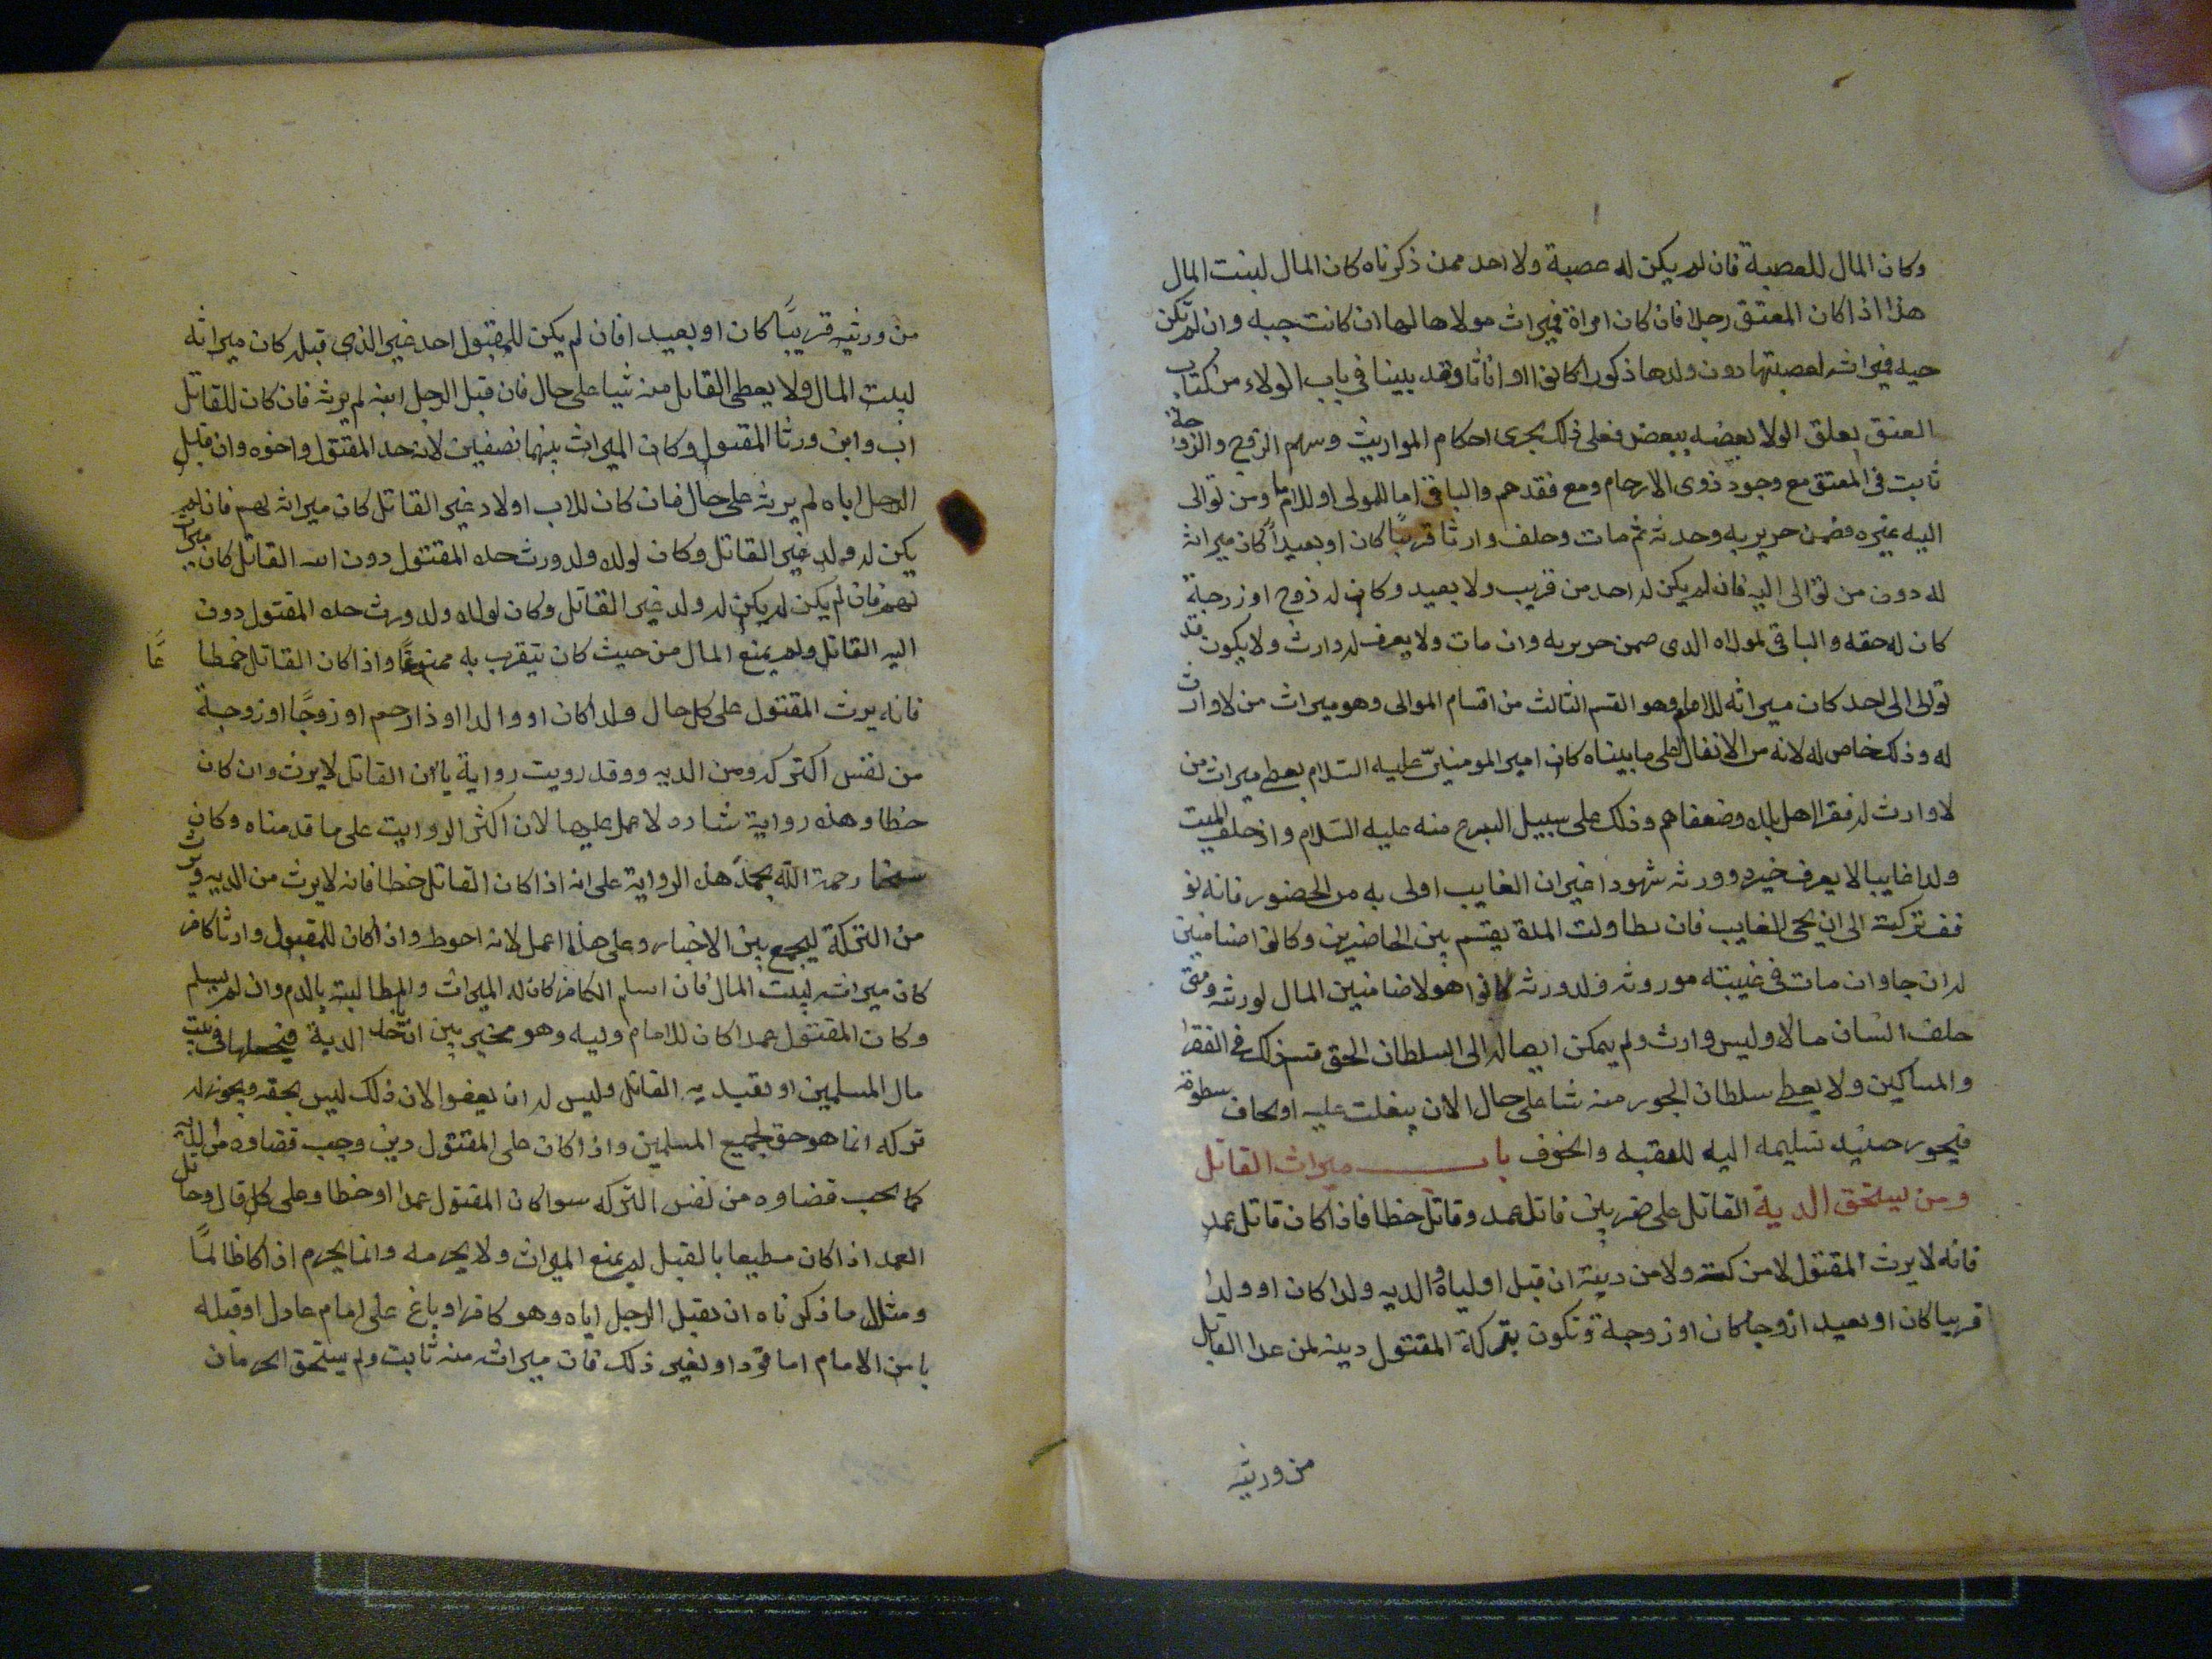 وكان المال للعصبة فان لم يكن له عصبة ولا احد ممن ذكرناه كان المال لبيت المال
هذا اذا كان المعتق رجلا فان كان امراة فميراث مولاها لها ان كانت حيه وان لم تكن
حيه فميراثه لعصبتها دون ولدها ذكورا كانوا او اناثا وقد بينا فى باب الولاء من كتاب
العتق تعلق الولا بعضه ببعض فعلى ذلك يجرى احكام المواريث وسهم الزوج والزوجة
ثابت فى المعتق مع وجود ذوى الارحام ومع فقدهم والباقى اما للمولى او للامام ومن توالى
اليه غيره فضمن جريرته وحدثه ثم مات وخلف وارثا قريبًا كان او بعيدًا كان ميراثه
له دون من توالى اليه فان لم يكن له احد من قريب ولا بعيد وكان له زوج او زوجة
كان له حقه والباقى لمولاه الذى ضمن جريرته وان مات ولا يعرف له وارث ولا يكون قد
توالى الى احد كان ميراثه للامام وهو القسم الثالث من اقسام الموالى وهو ميراث من لا وارث
له وذلك خاص له لانه من الانفال على ما بيناه كان امير المومنين عليه السلام يعطى ميراث من
لا وارث له فقرا اهل بلده وضعفاهم وذلك على سبيل التبرع منه عليه السلام واذ خلف الميت
ولدا غايبا لا يعرف خبره وورثه شهودا غير ان الغايب اولى به من الحضور فانه تو
قف تركته الى ان يجى الغايب فان تطاولت المدة يقتسم بين الحاضرين وكانوا ضامنين
له ان جا وان مات فى غيبته موروثه وله ورثه كانوا هولا ضامنين المال لورثته ومتى
خلف انسان مالا وليس وارث ولم يمكن ايصاله الى السلطان الحق قسم ذلك فى الفقرا
والمساكين ولا يعطى سلطان الجور منه شيا على حال الا ان يتغلب عليه او يخاف سطوته
فيجوز حينيذ تسليمه اليه للتقيه والخوف باب ميراث القاتل
ومن يستحق الدية القاتل على ضربين قاتل عمد وقاتل خطا فاذا كان قاتل عمد
فانه لا يرث المقتول لا من تركته ولا من ديته ان قبل اولياوه الديه ولدا كان او ولدا
قريبا كان او بعيدا زوجا كان او زوجة وتكون تركة المقتول ديته لمن عدا القاتل
من ورثته
من ورثته قريبًا كان او بعيدا فان لم يكن للمقتول احد غير الذى قتله كان ميراثه
لبيت المال ولا يعطى القاتل منه شيا على حال فان قتل الرجل ابنه لم يرثه فان كان للقاتل
اب وابن ورثا المقتول وكان الميراث بينهما نصفين لانه جد المقتول واخوه وان قتل
الرجل اباه لم يرثه على حال فان كان للاب اولاد غير القاتل كان ميراثه لهم فان لم
يكن له ولد غير القاتل وكان لولده ولد ورث جده المقتول دون ابيه القاتل كان ميراثه
لهم فان لم يكن له يكن له ولد غير القاتل وكان لولده ولد ورث جده المقتول دون
ابيه القاتل ولم يمنع المال من حيث كان يتقرب به ممنوعًا واذا كان القاتل خطا
فانه يرث المقتول على كل حال ولدا كان او والدا او ذا رحم او زوجًا او زوجة
من نفس التركه ومن الديه ووقد رويت رواية بان القاتل لا يرث وان كان
خطا وهذه رواية شاده لا عمل عليها لان اكثر الروايت على ما قدمناه وكان
شيخنا رحمة الله يحمل هذه الرواية على انه اذا كان القاتل خطا فانه لا يرث من الديه ويرث
من التركة ليجمع بين الاخبار وعلى هذا اعمل لانه احوط واذا كان للمقتول وارثا كافر
كان ميراثه لبيت المال فان اسلم الكافر كان له الميراث والمطالبته بالدم وان لم يسلم
وكان المقتول عمدا كان للامام وليه وهو مخير بين اخذ الدية فيجعلها فى بيت
مال المسلمين او يقيد به القاتل وليس له ان يعفوا لان ذلك ليس بحقه ويجوز له
تركه انما هو حق لجميع المسلمين واذا كان على المقتول دين وجب قضاوه من الدية
كما يجب قضاوه من نفس التركه سوا كان المقتول عمدا او خطا وعلى كل حال وقاتل
العمد اذا كان مطيعا بالقتل لم يمنع الميراث ولا يحرمه وانما يحرم اذا كا ظالمًا
ومثل ما ذكرناه ان يقتل الرجل اباه وهو كافر او باغ على امام عادل او قتله
بامر الامام اما قودا او لغير ذلك فان ميراثه منه ثابت ولم يستحق الحرمان